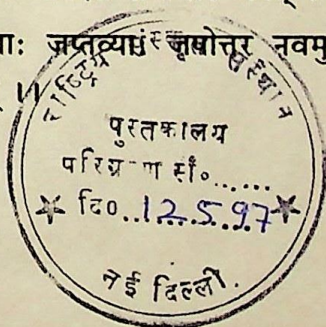 ाः जप्तव्याः जपोत्तर नवमु
।।
राष्ट्रिय संस्कृत संस्थान
पुस्तकालय
परिग्रहण सं०......
दि०..12.5.97
नई दिल्ली.